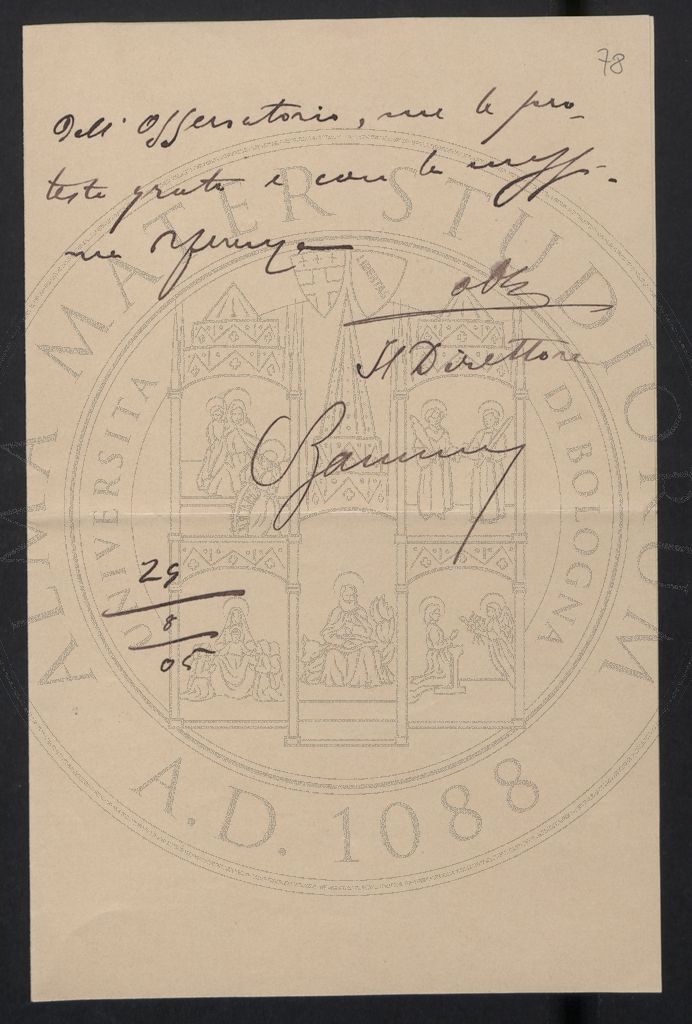 78
Dell' Osservatorio, me le pro-
testo grato e con la massi-
ma
Il Direttore
29
8
05
ALMA MATER STUDIORUM
UNIVERSITA DI BOLOGNA
LIBERTAS
A.D. 1088